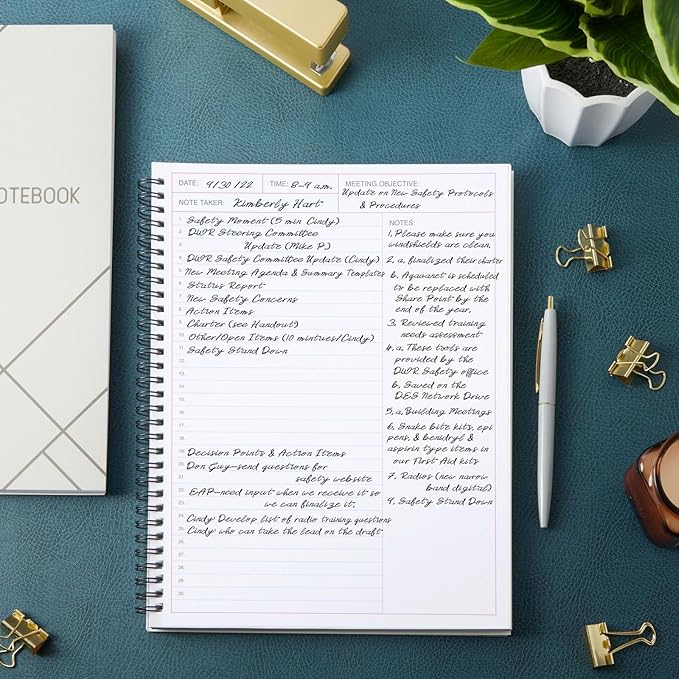 NOTEBOOK
DATE: 9/30/22 TIME: 8-9 a.m. MEETING OBJECTIVE:
Update on New Safety Protocols
& Procedures
NOTE TAKER: Kimberly Hart
1. Safety Moment (5 min Cindy)
2. DWR Steering Committee
3. Update (Mike P.)
4. DWR Safety Committee Update (Cindy)
5. New Meeting Agenda & Summary Templates
6. Status Report
7. New Safety Concerns
8. Action Items
9. Charter (see Handout)
10. Other/Open Items (10 mintues/Cindy)
11. Safety Stand Down
12.
13.
14.
15.
16.
17.
18.
19. Decision Points & Action Items
20. Don Guy-send questions for
21. safety website
22. EAP-need input when we receive it so
23. we can finalize it.
24. Cindy Develop list of radio training questions
25. Cindy who can take the lead on the draft
26.
27.
28.
29.
30.
NOTES:
1. Please make sure you
windshields are clean.
2. a. finalized their charter
b. Aquanet is scheduled
to be replaced with
Share Point by the
end of the year.
3. Reviewed training
needs assessment
4. a. These tools are
provided by the
DWR Safety office
b. Saved on the
DES Network Drive
5. a. Building Meetings
6. Snake bite kits, epi
pens, & benidryl &
aspirin type items in
our First Aid kits
7. Radios (new narrow
band digital)
9. Safety Stand Down